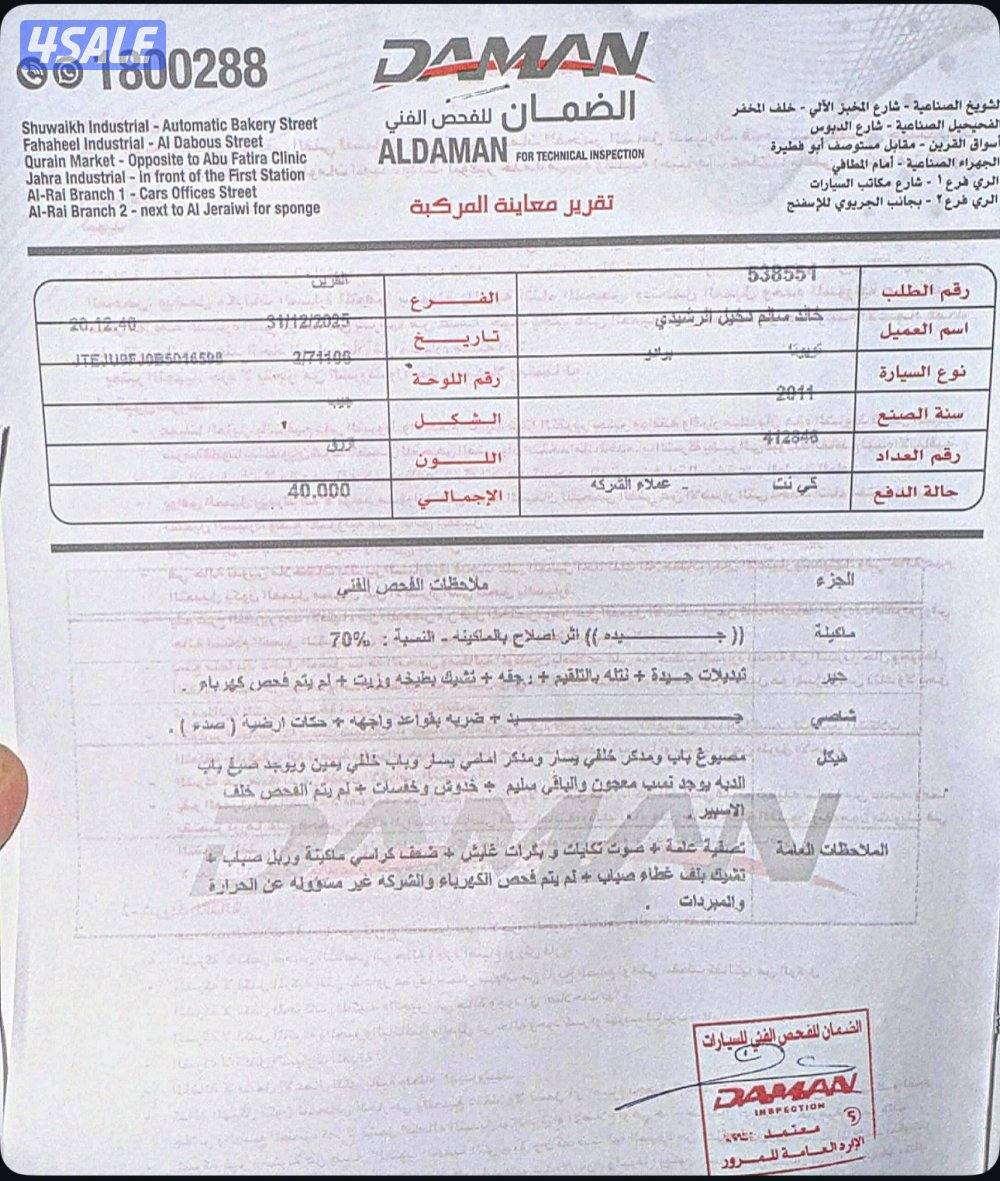 4SALE
1800288
DAMAN
الضمان للفحص الفني
ALDAMAN FOR TECHNICAL INSPECTION
تقرير معاينة المركبة
Shuwaikh Industrial - Automatic Bakery Street
Fahaheel Industrial - Al Dabous Street
Qurain Market - Opposite to Abu Fatira Clinic
Jahra Industrial - in front of the First Station
Al-Rai Branch 1 - Cars Offices Street
Al-Rai Branch 2 - next to Al Jeraiwi for sponge
الشويخ الصناعية - شارع المخبز الآلي - خلف المخفر
الفحيحيل الصناعية - شارع الدبوس
أسواق القرين - مقابل مستوصف أبو فطيرة
الجهراء الصناعية - أمام المطافي
الري فرع ١ - شارع مكاتب السيارات
الري فرع ٢ - بجانب الجريوي للإسفنج
رقم الطلب 538551 الفرع القرين
اسم العميل خالد سالم دخيل الرشيدي تاريخ 31/12/2025 20:12:40
نوع السيارة تويوتا برادو رقم اللوحة 2/71106
سنة الصنع 2011 الشكل جيب
رقم العداد 412848 اللون ازرق
حالة الدفع كي نت - عملاء الشركه الإجمالي 40.000
الجزء ملاحظات الفحص الفني
ماكينة (( جـــيده )) اثر اصلاح بالماكينه - النسبة : 70%
جير تبديلات جـيدة + نتله بالتلقيم + رجفه + تشيك بطيخه وزيت + لم يتم فحص كهرباء
شاصي جـــيد + ضربه بقواعد واجهه + حكات ارضية ( صدء ) .
هيكل مصبوغ باب ومدكر خلفي يسار ومدكر امامي يسار وباب خلفي يمين ويوجد صبغ باب
الدبه يوجد نسب معجون والباقي سليم + خدوش وخفسات + لم يتم الفحص خلف
الاسبير .
الملاحظات العامة تصفية علمة + صوت تكايات و بكرات غايش + ضعف كراسي ماكينة وربل صباب +
تشيك بلف غطاء صباب + لم يتم فحص الكهرباء والشركه غير مسؤوله عن الحرارة
والمبردات .
DAMAN
الضمان للفحص الفني للسيارات
DAMAN
INSPECTION
معتمد
الإدارة العامة للمرور